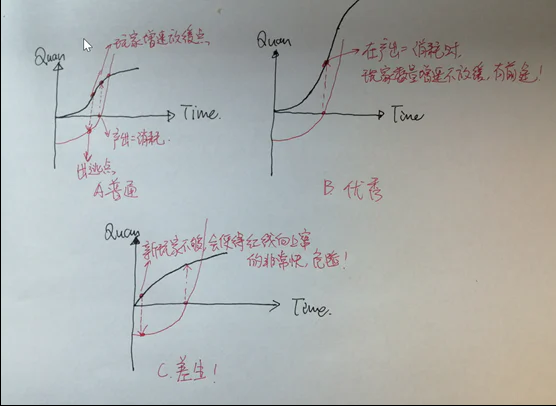 Quan
玩家增速放缓点
Time.
产出=消耗.
出逃点
A 普通
Quan
在产出=消耗时
玩家数量增速不放缓,有前途!
Time
B 优秀
Quan
新玩家不够,会使得红线向上窜
的非常快,危险!
Time.
C.差生!